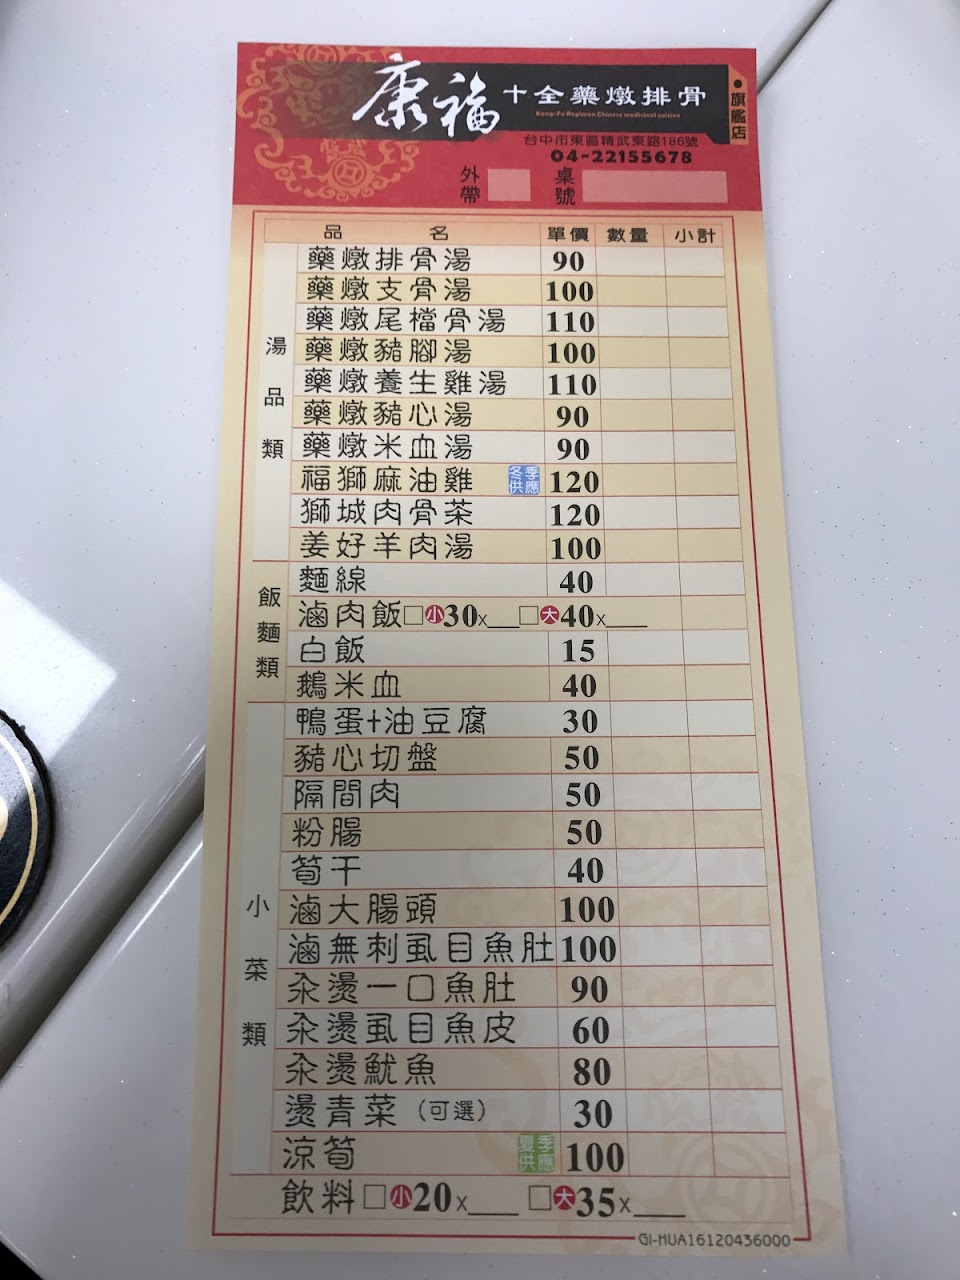 康福 十全藥燉排骨
Kang-Fu Regimen Chinese medicinal cuisine
●旗艦店
台中市東區精武東路186號
04-22155678
外帶 桌號
品名 單價 數量 小計
湯品類
藥燉排骨湯 90
藥燉支骨湯 100
藥燉尾檔骨湯 110
藥燉豬腳湯 100
藥燉養生雞湯 110
藥燉豬心湯 90
藥燉米血湯 90
福獅麻油雞 冬季供應 120
獅城肉骨茶 120
姜好羊肉湯 100
飯麵類
麵線 40
滷肉飯□小30x___□大40x___
白飯 15
鵝米血 40
小菜類
鴨蛋+油豆腐 30
豬心切盤 50
隔間肉 50
粉腸 50
筍干 40
滷大腸頭 100
滷無刺虱目魚肚 100
汆燙一口魚肚 90
汆燙虱目魚皮 60
汆燙魷魚 80
燙青菜(可選) 30
涼筍 夏季供應 100
飲料□小20x___ □大35x___
GI-HUA16120436000